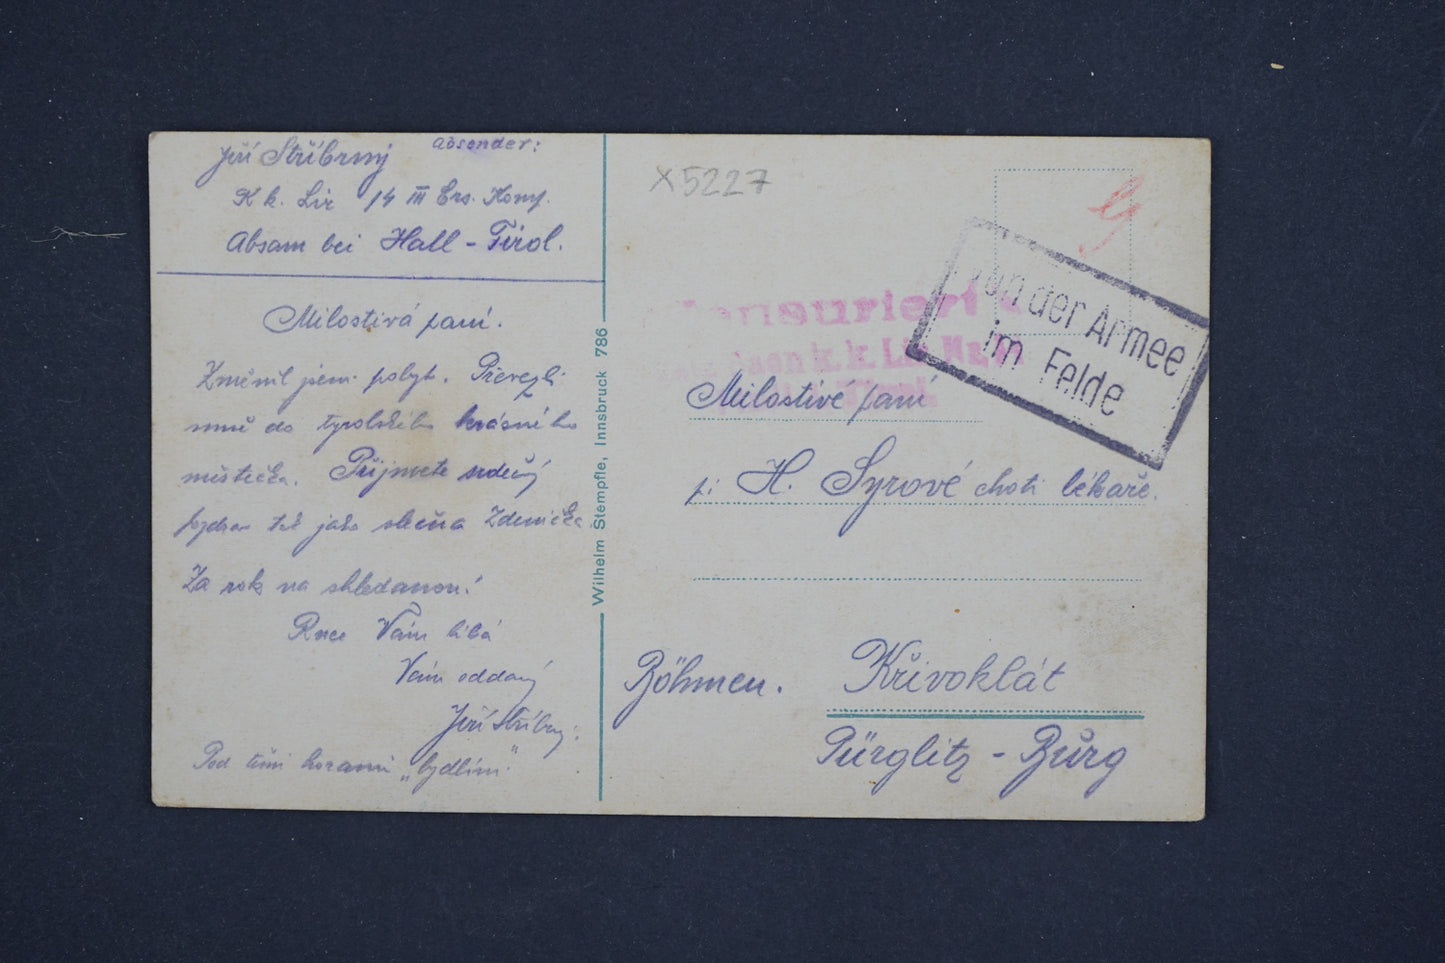 Absender:
Jiří Stříbrný
K k. Lir 14 III Ers. Komp.
Absam bei Hall - Tirol.
Milostivá paní.
Změnil jsem pobyt. Převezli
mně do tyrolského krásného
městečka. Přijmete srdečný
pozdrav též jako slečna Zdenička
Za rok na shledanou!
Ruce Vám líbá
Vám oddaný
Jiří Stříbrný.
Pod těmi horami „bydlím“
Wilhelm Stempfle, Innsbruck 786
X5227
Zensuriert
k. k. L
Von der Armee
im Felde
Milostivé paní
pí H. Syrové choti lékaře.
Böhmen. Křivoklát
Pürglitz - Bürg